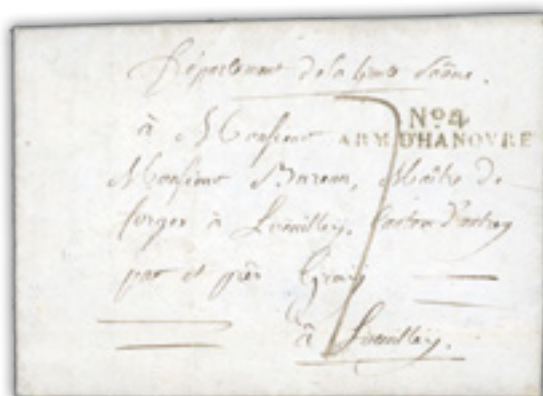 Département de la hte Saône.
à Monsieur
No 4
ARM D'HANOVRE
Monsieur Bureau, Maître de
forges à Loeuilley, Canton d'autrey
par et près Gray
7
à Loeuilley.